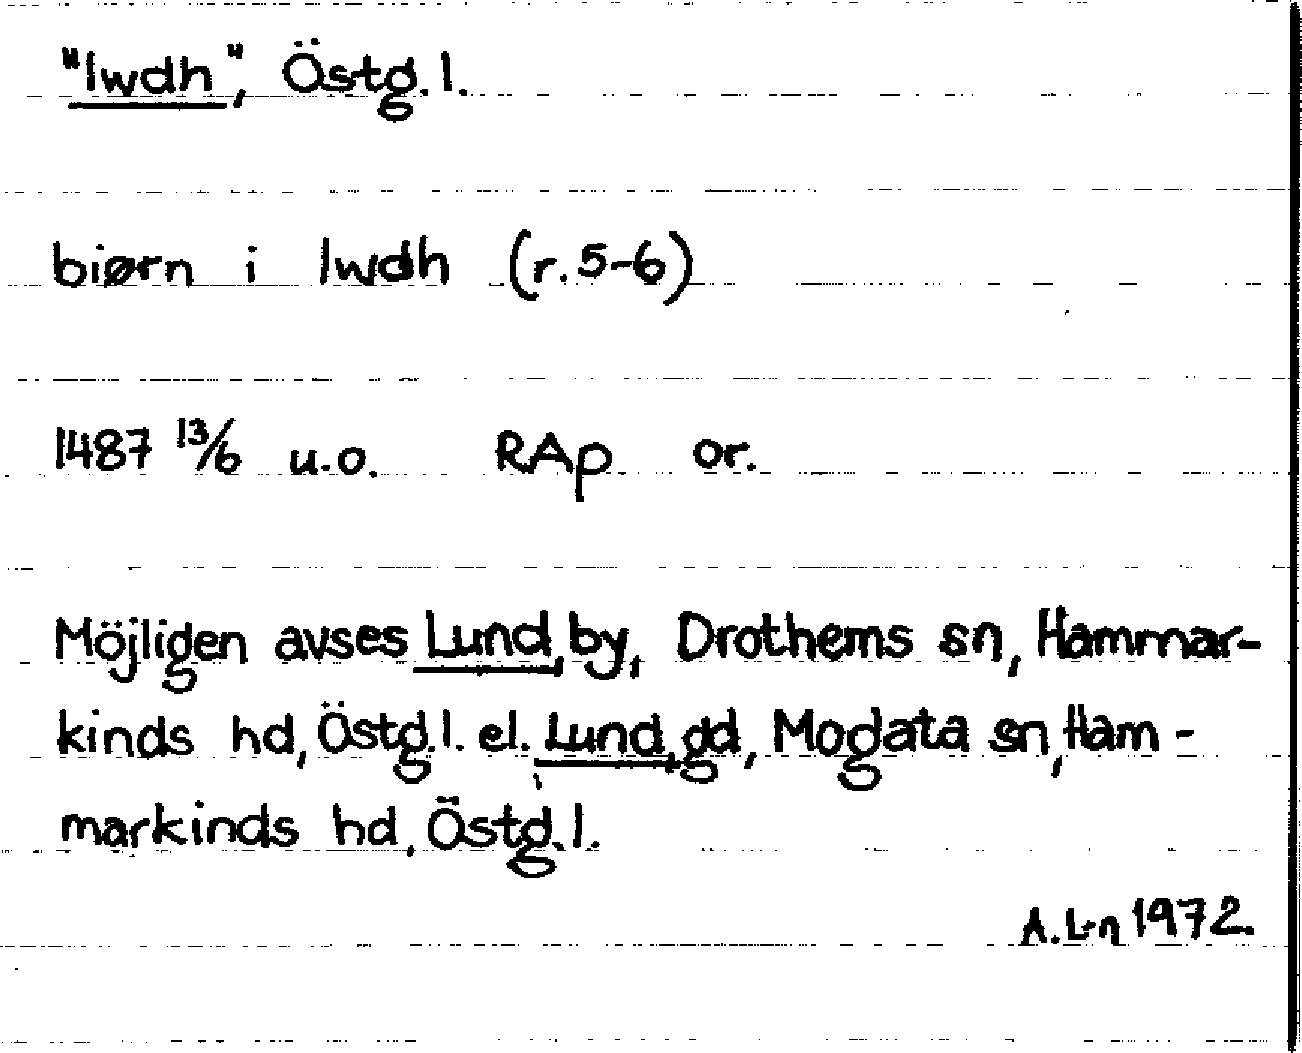 "lwdh", Östg.l.
biørn i lwdh (r.5-6)
1487 13/6 u.o. RAp or.
Möjligen avses Lund, by, Drothems sn, Hammar-
kinds hd, Östg.l. el. Lund, gd, Mogata sn, Ham-
markinds hd, Östg.l.
A.L-n 1972.